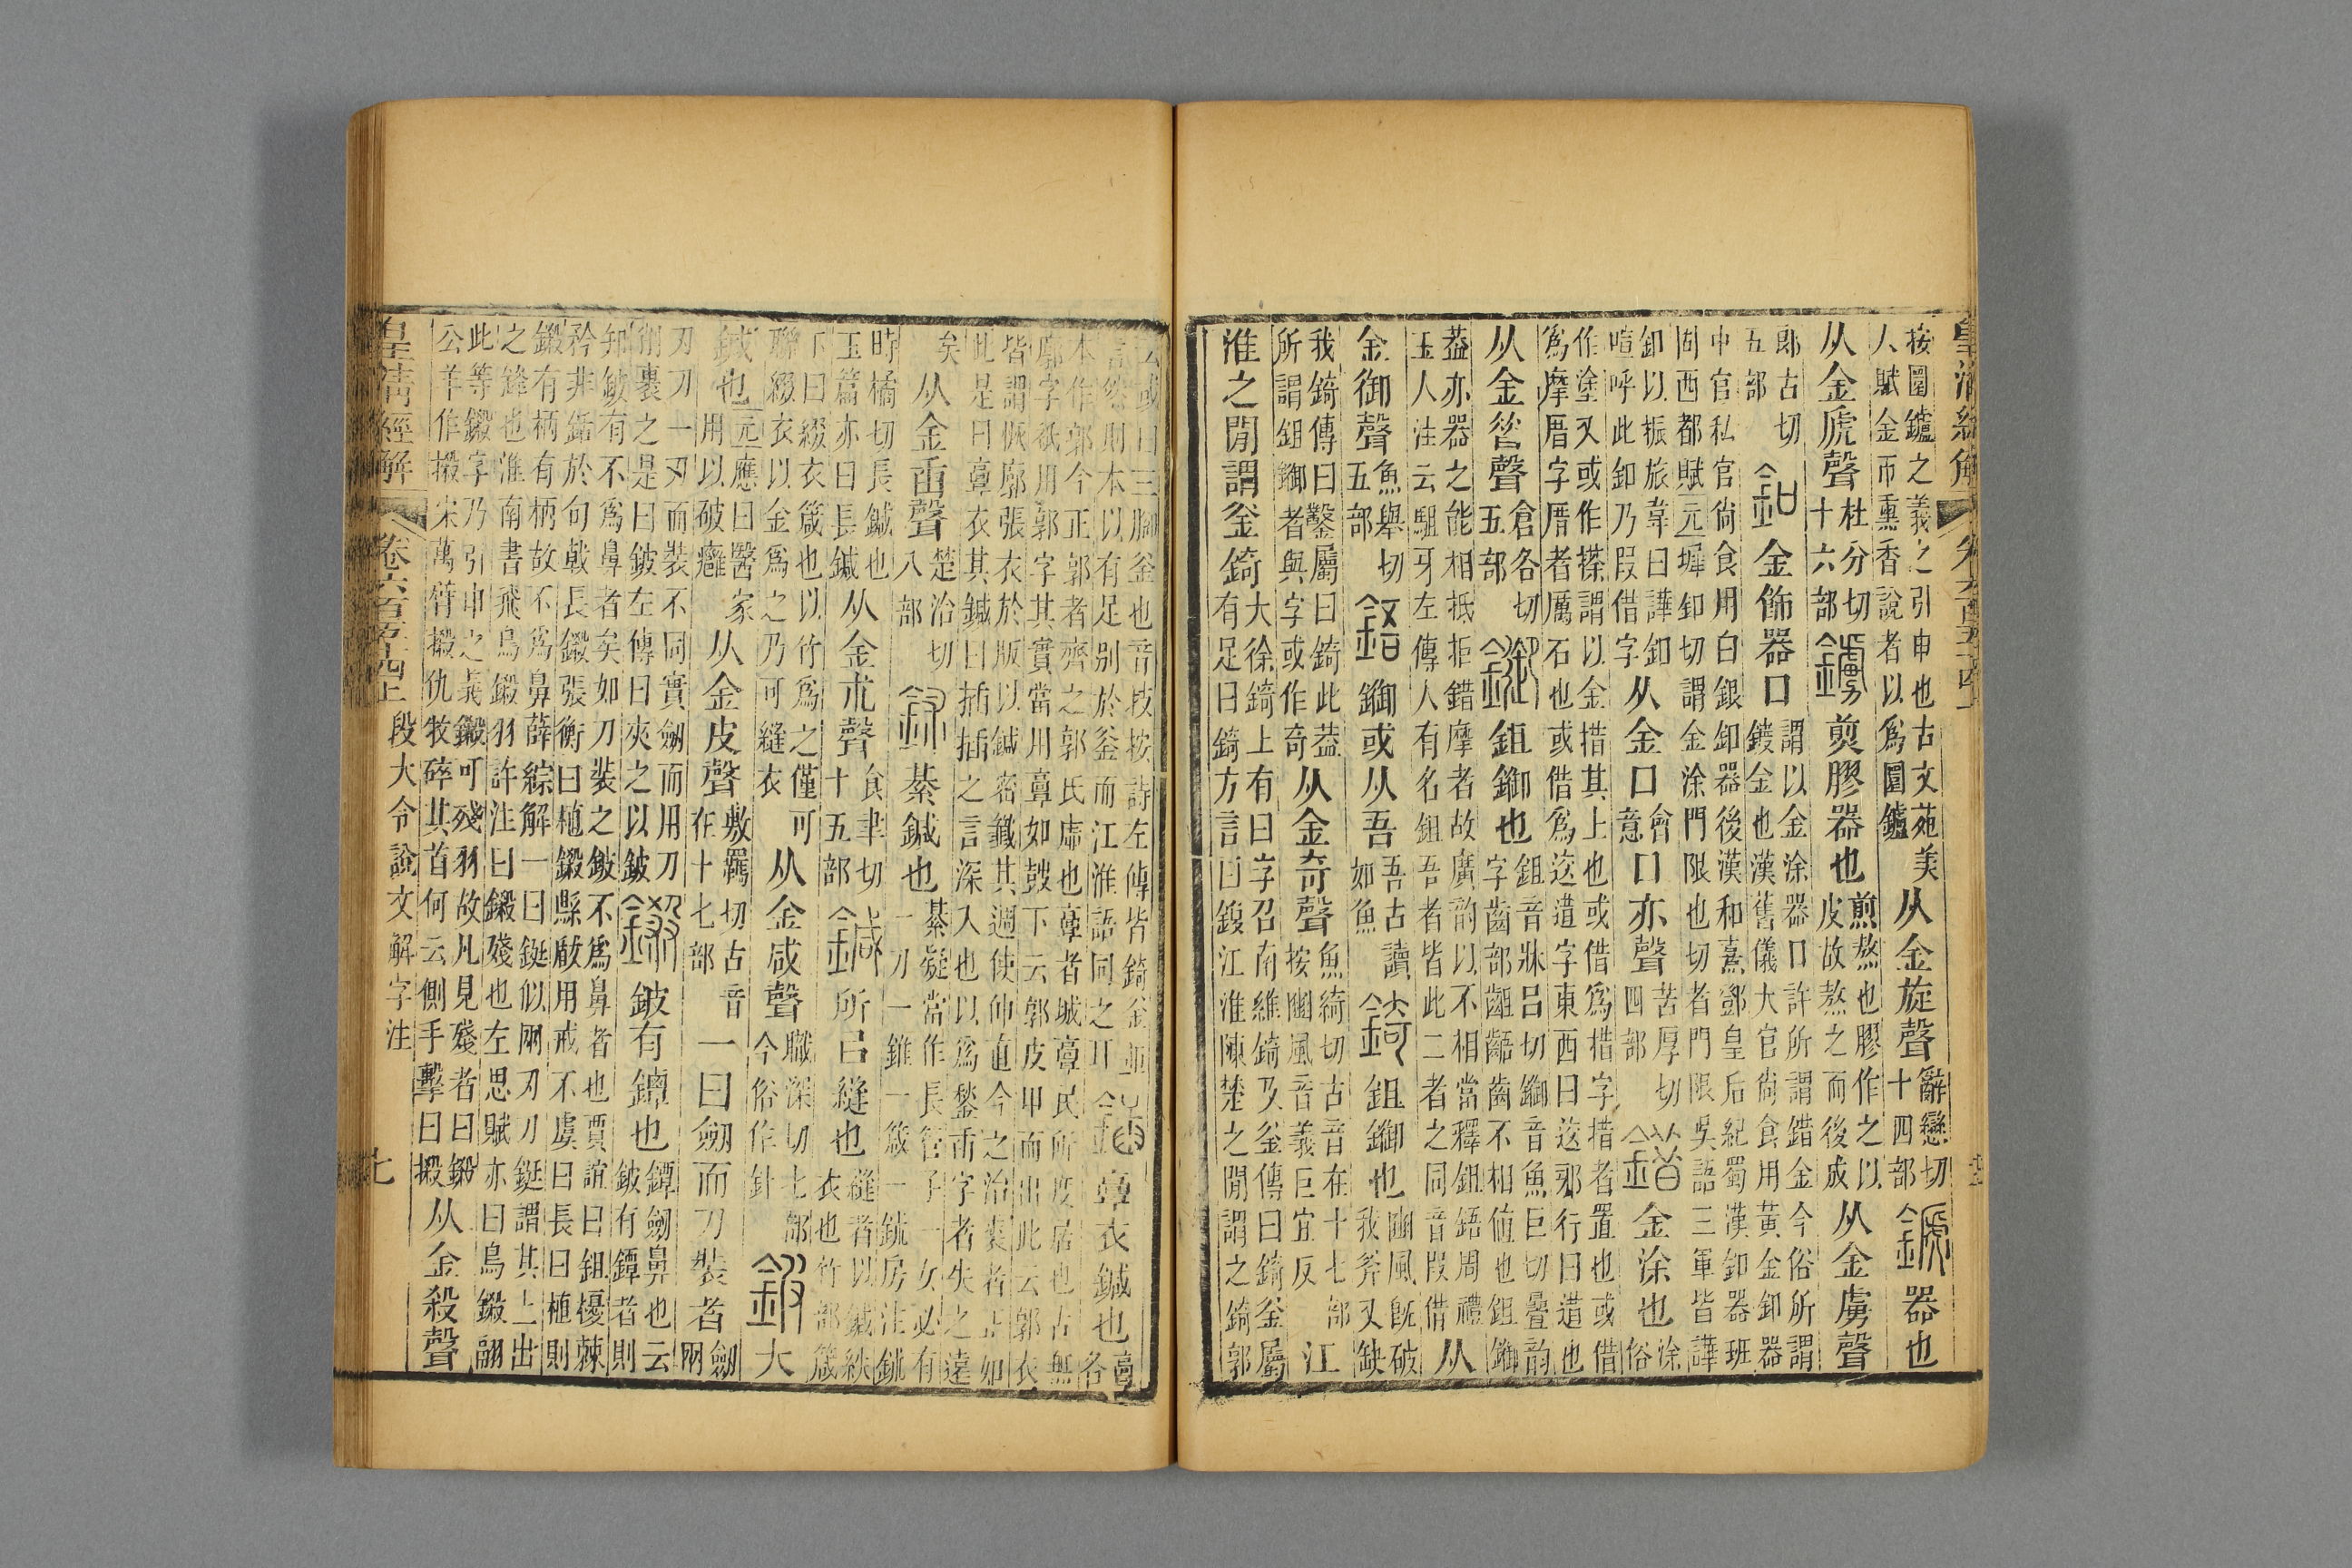 皇清經解 卷六百五十四上
按圜鑪之義之引申也古文苑美
人賦金帀熏香說者以爲圜鑪
从金旋聲
辭戀切
十四部
鏣器也
从金虒聲
杜兮切
十六部
鐪煎膠器也
煎熬也膠作之以
皮故熬之而後成
从金虜聲
郎古切
五部
釦金飾器口
謂以金涂器口許所謂錯金今俗所謂
鍍金也漢舊儀大官尙食用黃金釦器
中官私官尙食用白銀釦器後漢和熹鄧皇后紀蜀漢釦器班
固西都賦元墀釦切謂金涂門限也切者門限吳語三軍皆譁
釦以振旅韋曰譁釦
喧呼此釦乃叚借字
从金口
會
意
口亦聲
苦厚切
四部
錯金涂也
涂
俗
作塗又或作搽謂以金措其上也或借爲措字措者置也或借
爲摩厝字厝者厲石也或借爲迻遺字東西曰迻邪行曰遺也
从金昔聲
倉各切
五部
䥏鉏䥏也
鉏音牀呂切䥏音魚巨切曡韵
字齒部齟齬齒不相値也鉏䥏
葢亦器之能相抵拒錯摩者故廣韵以不相當釋鉏鋙周禮
玉人注云駔牙左傳人有名鉏吾者皆此二者之同音叚借
从
金御聲
魚舉切
五部
鋙䥏或从吾
吾古讀
如魚
錡鉏䥏也
豳風旣破
我斧又缺
我錡傳曰鑿屬曰錡此葢
所謂鉏䥏者與字或作奇
从金奇聲
魚綺切古音在十七部
按豳風音義巨宜反
江
淮之閒謂釜錡
大徐錡上有曰字召南維錡及釜傳曰錡釜屬
有足曰錡方言曰鍑江淮陳楚之閒謂之錡郭
云或曰三腳釜也音技按詩左傳皆錡釜並
言然則本以有足別於釜而江淮語同之耳
鍤𩫏衣鍼也
𩫏
各
本作郭今正郭者齊之郭氏虛也𩫏者城𩫏民所度居也古無
廓字衹用郭字其實當用𩫏如鼓下云郭皮甲而出此云郭衣
皆謂恢廓張衣於版以鍼密籤其週使伸直今之治裘者正如
此是曰𩫏衣其鍼曰插插之言深入也以爲鍫臿字者失之遠
矣
从金臿聲
楚洽切
八部
鉥綦鍼也
綦疑當作長管子一女必有
一刀一錐一箴一鉥房注鉥
時橘切長鍼也
玉篇亦曰長鍼
从金朮聲
食聿切
十五部
鍼所㠯縫也
縫者以鍼紩
衣也竹部箴
下曰綴衣箴也以竹爲之僅可
聯綴衣以金爲之乃可縫衣
从金咸聲
職深切七部
今俗作針
鈹大
鍼也
元應曰醫家
用以破癰
从金皮聲
敷羈切古音
在十七部
一曰劎而刀裝者
劎
兩
刃刀一刃而裝不同實劎而用刀
削裹之是曰鈹左傳曰夾之以鈹
鎩鈹有鐔也
鐔劎鼻也云
鈹有鐔者則
知鈹有不爲鼻者矣如刀裝之鈹不爲鼻者也賈誼曰鉏櫌棘
矜非銛於句戟長鎩張衡曰植鎩縣瞂用戒不虞曰長曰植則
鎩有柄有柄故不爲鼻薛綜解一曰鋋似兩刃刀鋋謂其上出
之鋒也淮南書飛鳥鎩羽許注曰鎩殘也左思賦亦曰鳥鎩翮
此等鎩字乃引申之義鎩可殘羽故凡見殘者曰鎩
公羊作摋宋萬臂摋仇牧碎其首何云側手擊曰摋
从金殺聲
皇清經解 卷六百五十四上 段大令說文解字注 七